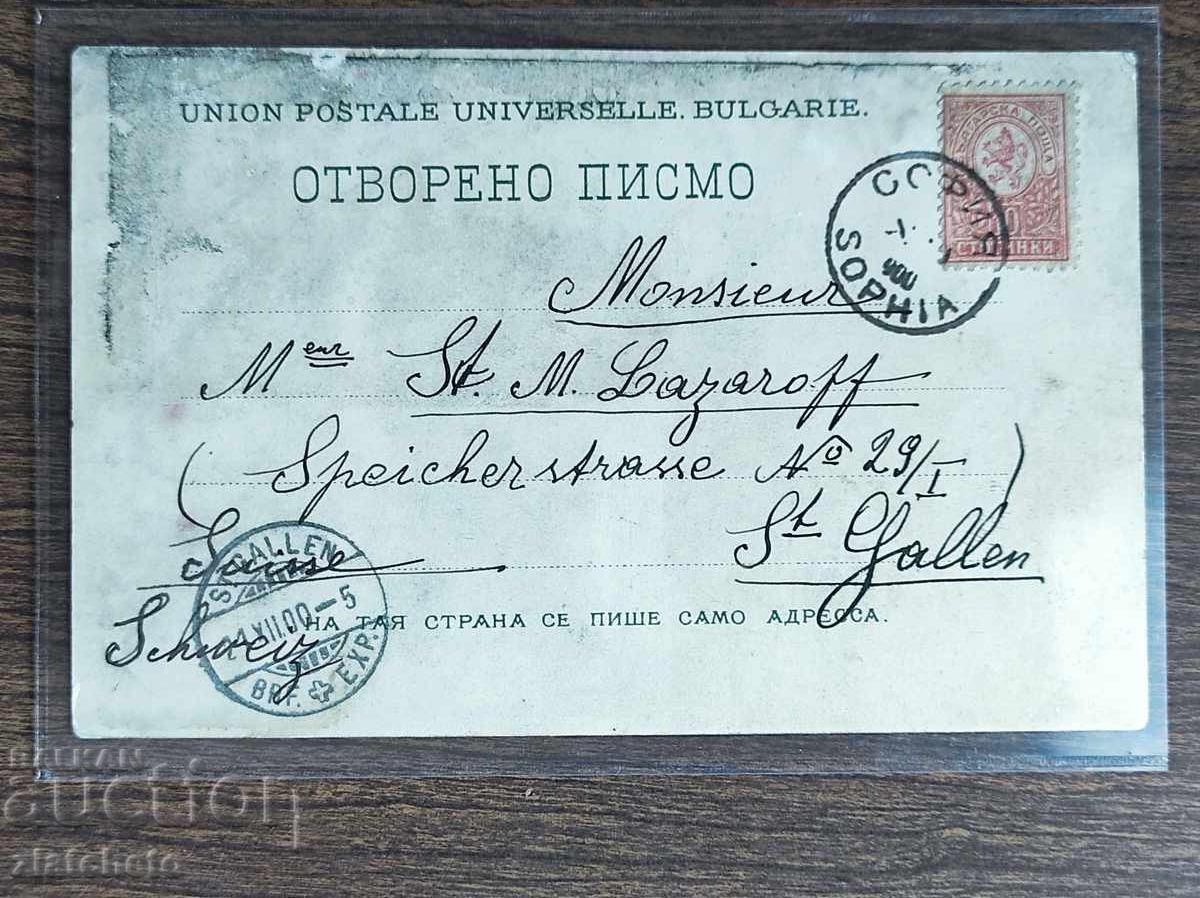 UNION POSTALE UNIVERSELLE. BULGARIE.
ОТВОРЕНО ПИСМО
БЪЛГАРСКА ПОЩА
10
СТОТИНКИ
СОФИЯ
900
SOPHIA
Monsieur
Meur St. M. Lazaroff
(Speicherstrasse No 29/I)
St Gallen
Suisse
Schweiz
ST. GALLEN
XII.00-5
BRF. EXP.
НА ТАЯ СТРАНА СЕ ПИШЕ САМО АДРЕССА.
BALKAN
auction
zlatchoto